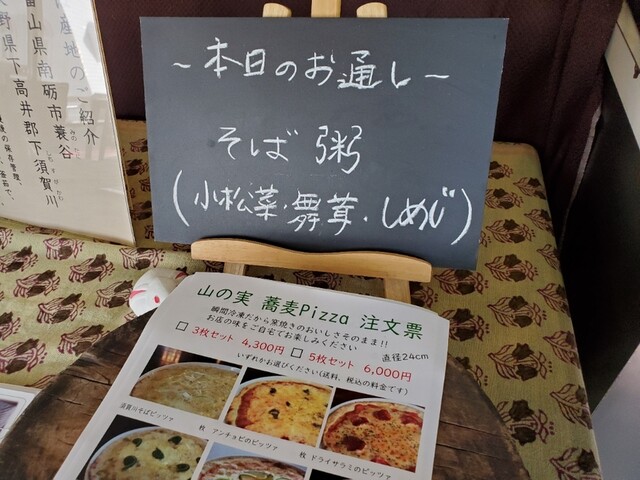 産地のご紹介
富山県南砺市蓑谷
みのだに
長野県下高井郡下須賀川
～本日のお通し～
そば 粥
(小松菜・舞茸・しめじ)
山の実 蕎麦Pizza 注文票
瞬間冷凍だから窯焼きのおいしさそのまま!!
お店の味をご自宅でお楽しみください
□ 3枚セット 4,300円 □ 5枚セット 6,000円
直径24cm
いずれかお選びください(送料、税込の料金です)
須賀川そばピッツァ
枚 アンチョビのピッツァ
枚 ドライサラミのピッツァ